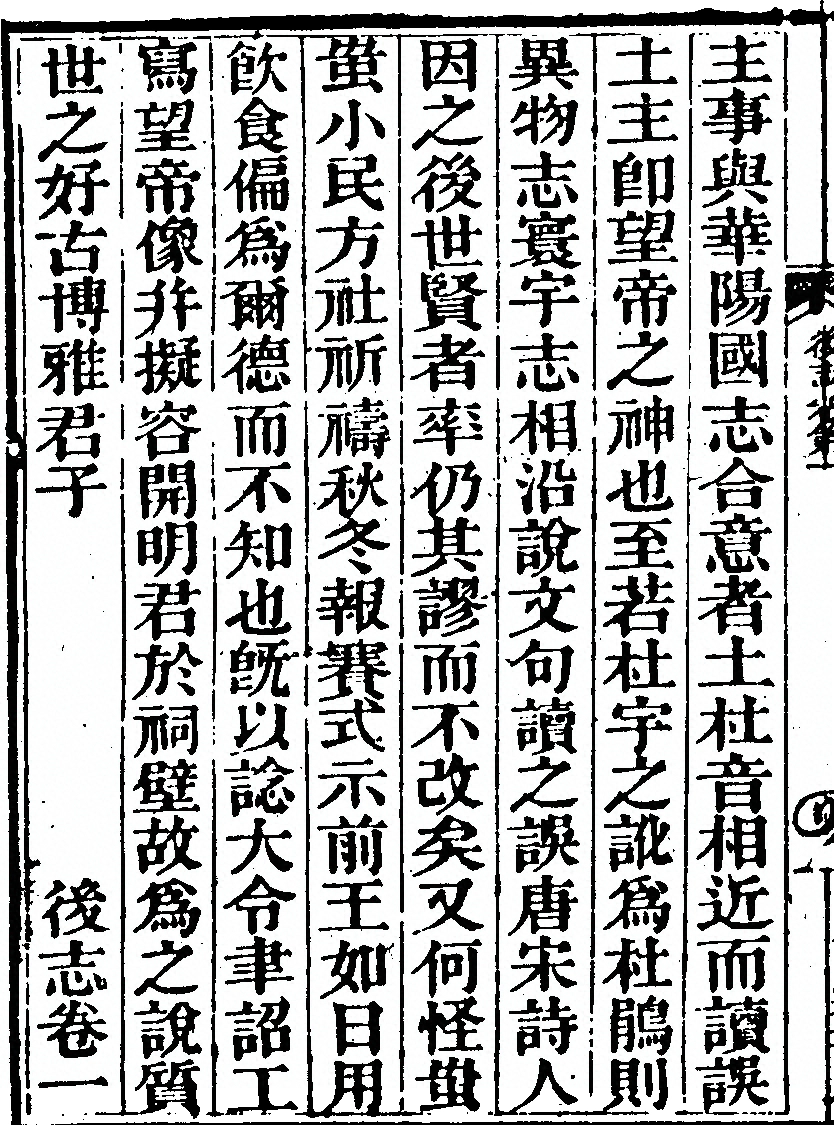 主事與華陽國志合意者土杜音相近而讀誤
土主卽望帝之神也至若杜宇之訛爲杜鵑則
異物志寰宇志相沿說文句讀之誤唐宋詩人
因之後世賢者率仍其謬而不改矣又何怪蚩
蚩小民方社祈禱秋冬報賽式示前王如日用
飲食偏爲爾德而不知也旣以諗大令聿詔工
寫望帝像幷擬容開明君於祠壁故爲之說質
世之好古博雅君子
後志卷一